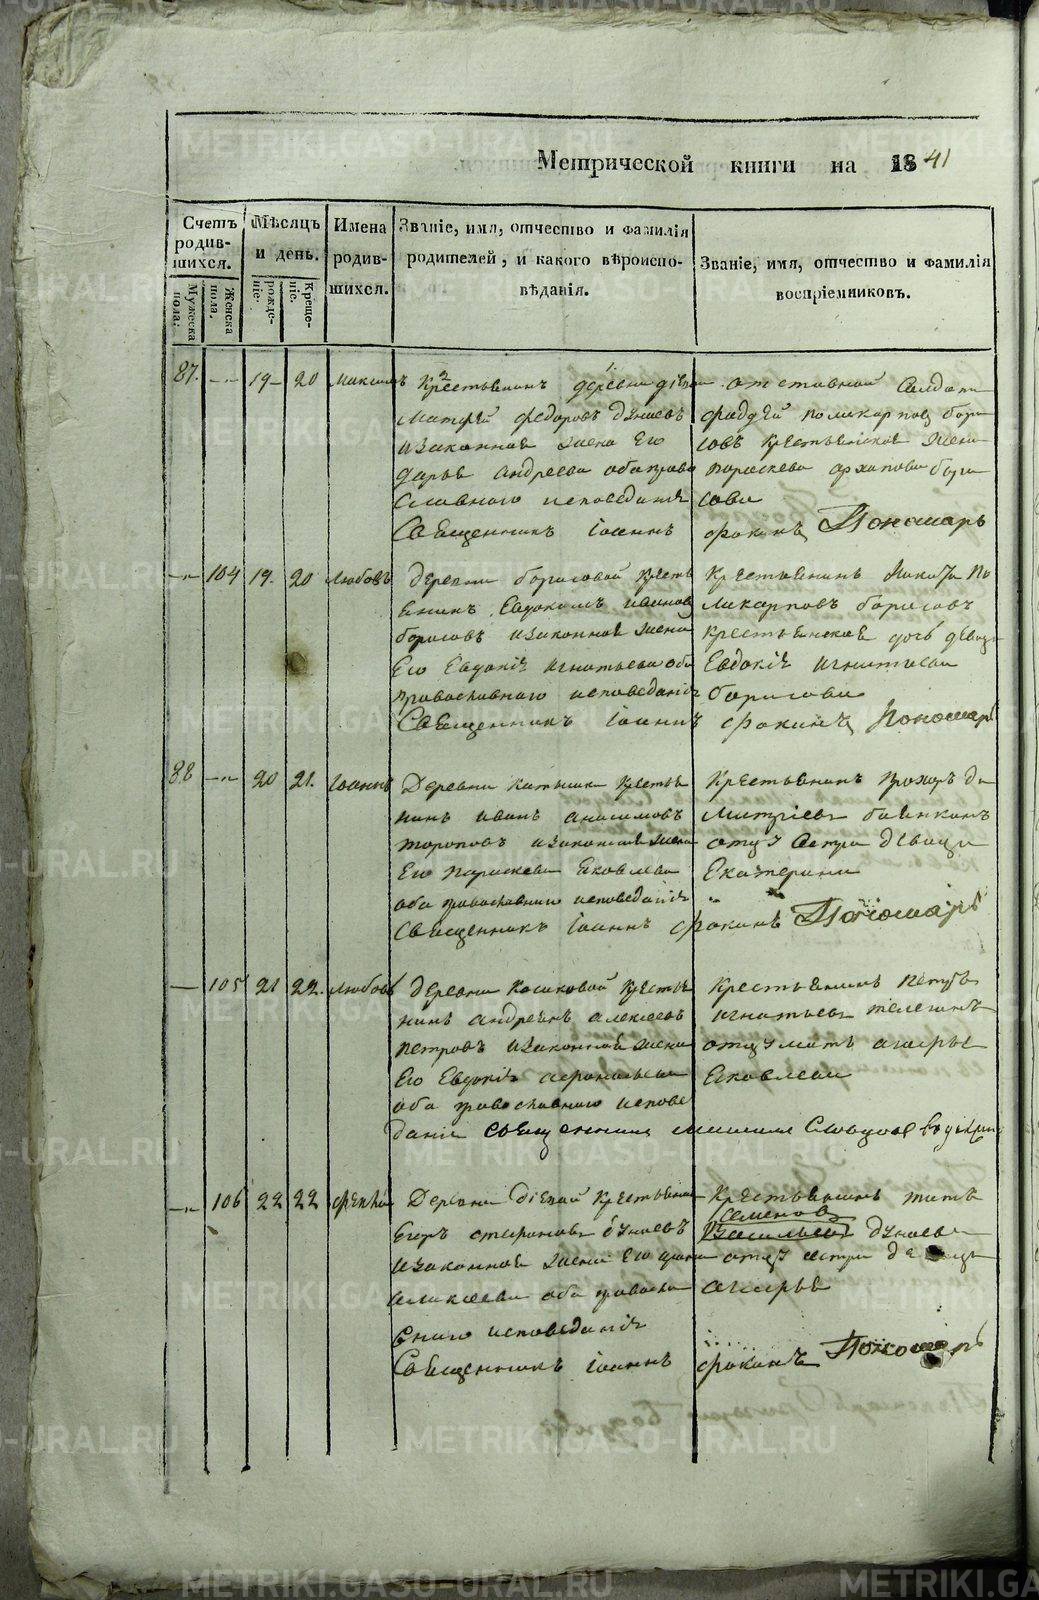 Метрической книги на 1841
Счетъ родив-шихся.
Мужеска пола.
Женска пола.
Мѣсяцъ и день.
рожде-ніе.
Креще-ніе.
Имена родив-шихся.
Званіе, имя, отчество и фамилія
родителей, и какого вѣроиспо-
вѣданія.
Званіе, имя, отчество и фамилія
воспріемниковъ.
87. 19 20 Максимъ
Крестьянинъ деревни
Матфей Федоровъ Дунаевъ
и законная жена его
Дарья Андреева оба право
славнаго исповеданія
Священникъ Іоаннъ Фокинъ Пономарь
отставной Солдатъ
Фаддей Поликарповъ Бори
совъ крестьянская жена
Параскева Архипова Бори
сова
104 19. 20 Любовь
Деревни Борисовой кресть
янинъ Евдокимъ Ивановъ
Борисовъ и законная жена
Его Евдокія Игнатьева оба
православнаго исповеданія
Священникъ Іоаннъ Фокинъ Пономарь
Крестьянинъ Никита По
ликарповъ Борисовъ
крестьянская дочь девица
Евдокія Игнатьева
Борисова
88 20 21. Іоаннъ
Деревни крестья
нинъ Иванъ Анисимовъ
Тороповъ и законная жена
Его Параскева Яковлева
оба православнаго исповеданія
Священникъ Іоаннъ Фокинъ Пономарь
Крестьянинъ Прохоръ Ди
митріевъ
отца сестра девица
Екатерина
105 21 22. Любовь
Деревни Косиковой крестья
нинъ Андреянъ Алексеевъ
Петровъ и законная жена
Его Евдокія
оба православнаго испове
данія Священникъ Словцовъ
Крестьянинъ Петръ
Игнатьевъ Телегинъ
отца мать
Яковлева
106 22 22
Деревни крестьянинъ
Егоръ Дунаевъ
и законная жена его
Алексеева оба правосла
внаго исповеданія
Священникъ Іоаннъ Фокинъ Пономарь
Крестьянинъ Титъ
Семеновъ
Васильевъ Дунаевъ
отца сестра девица
METRIKI.GASO-URAL.RU